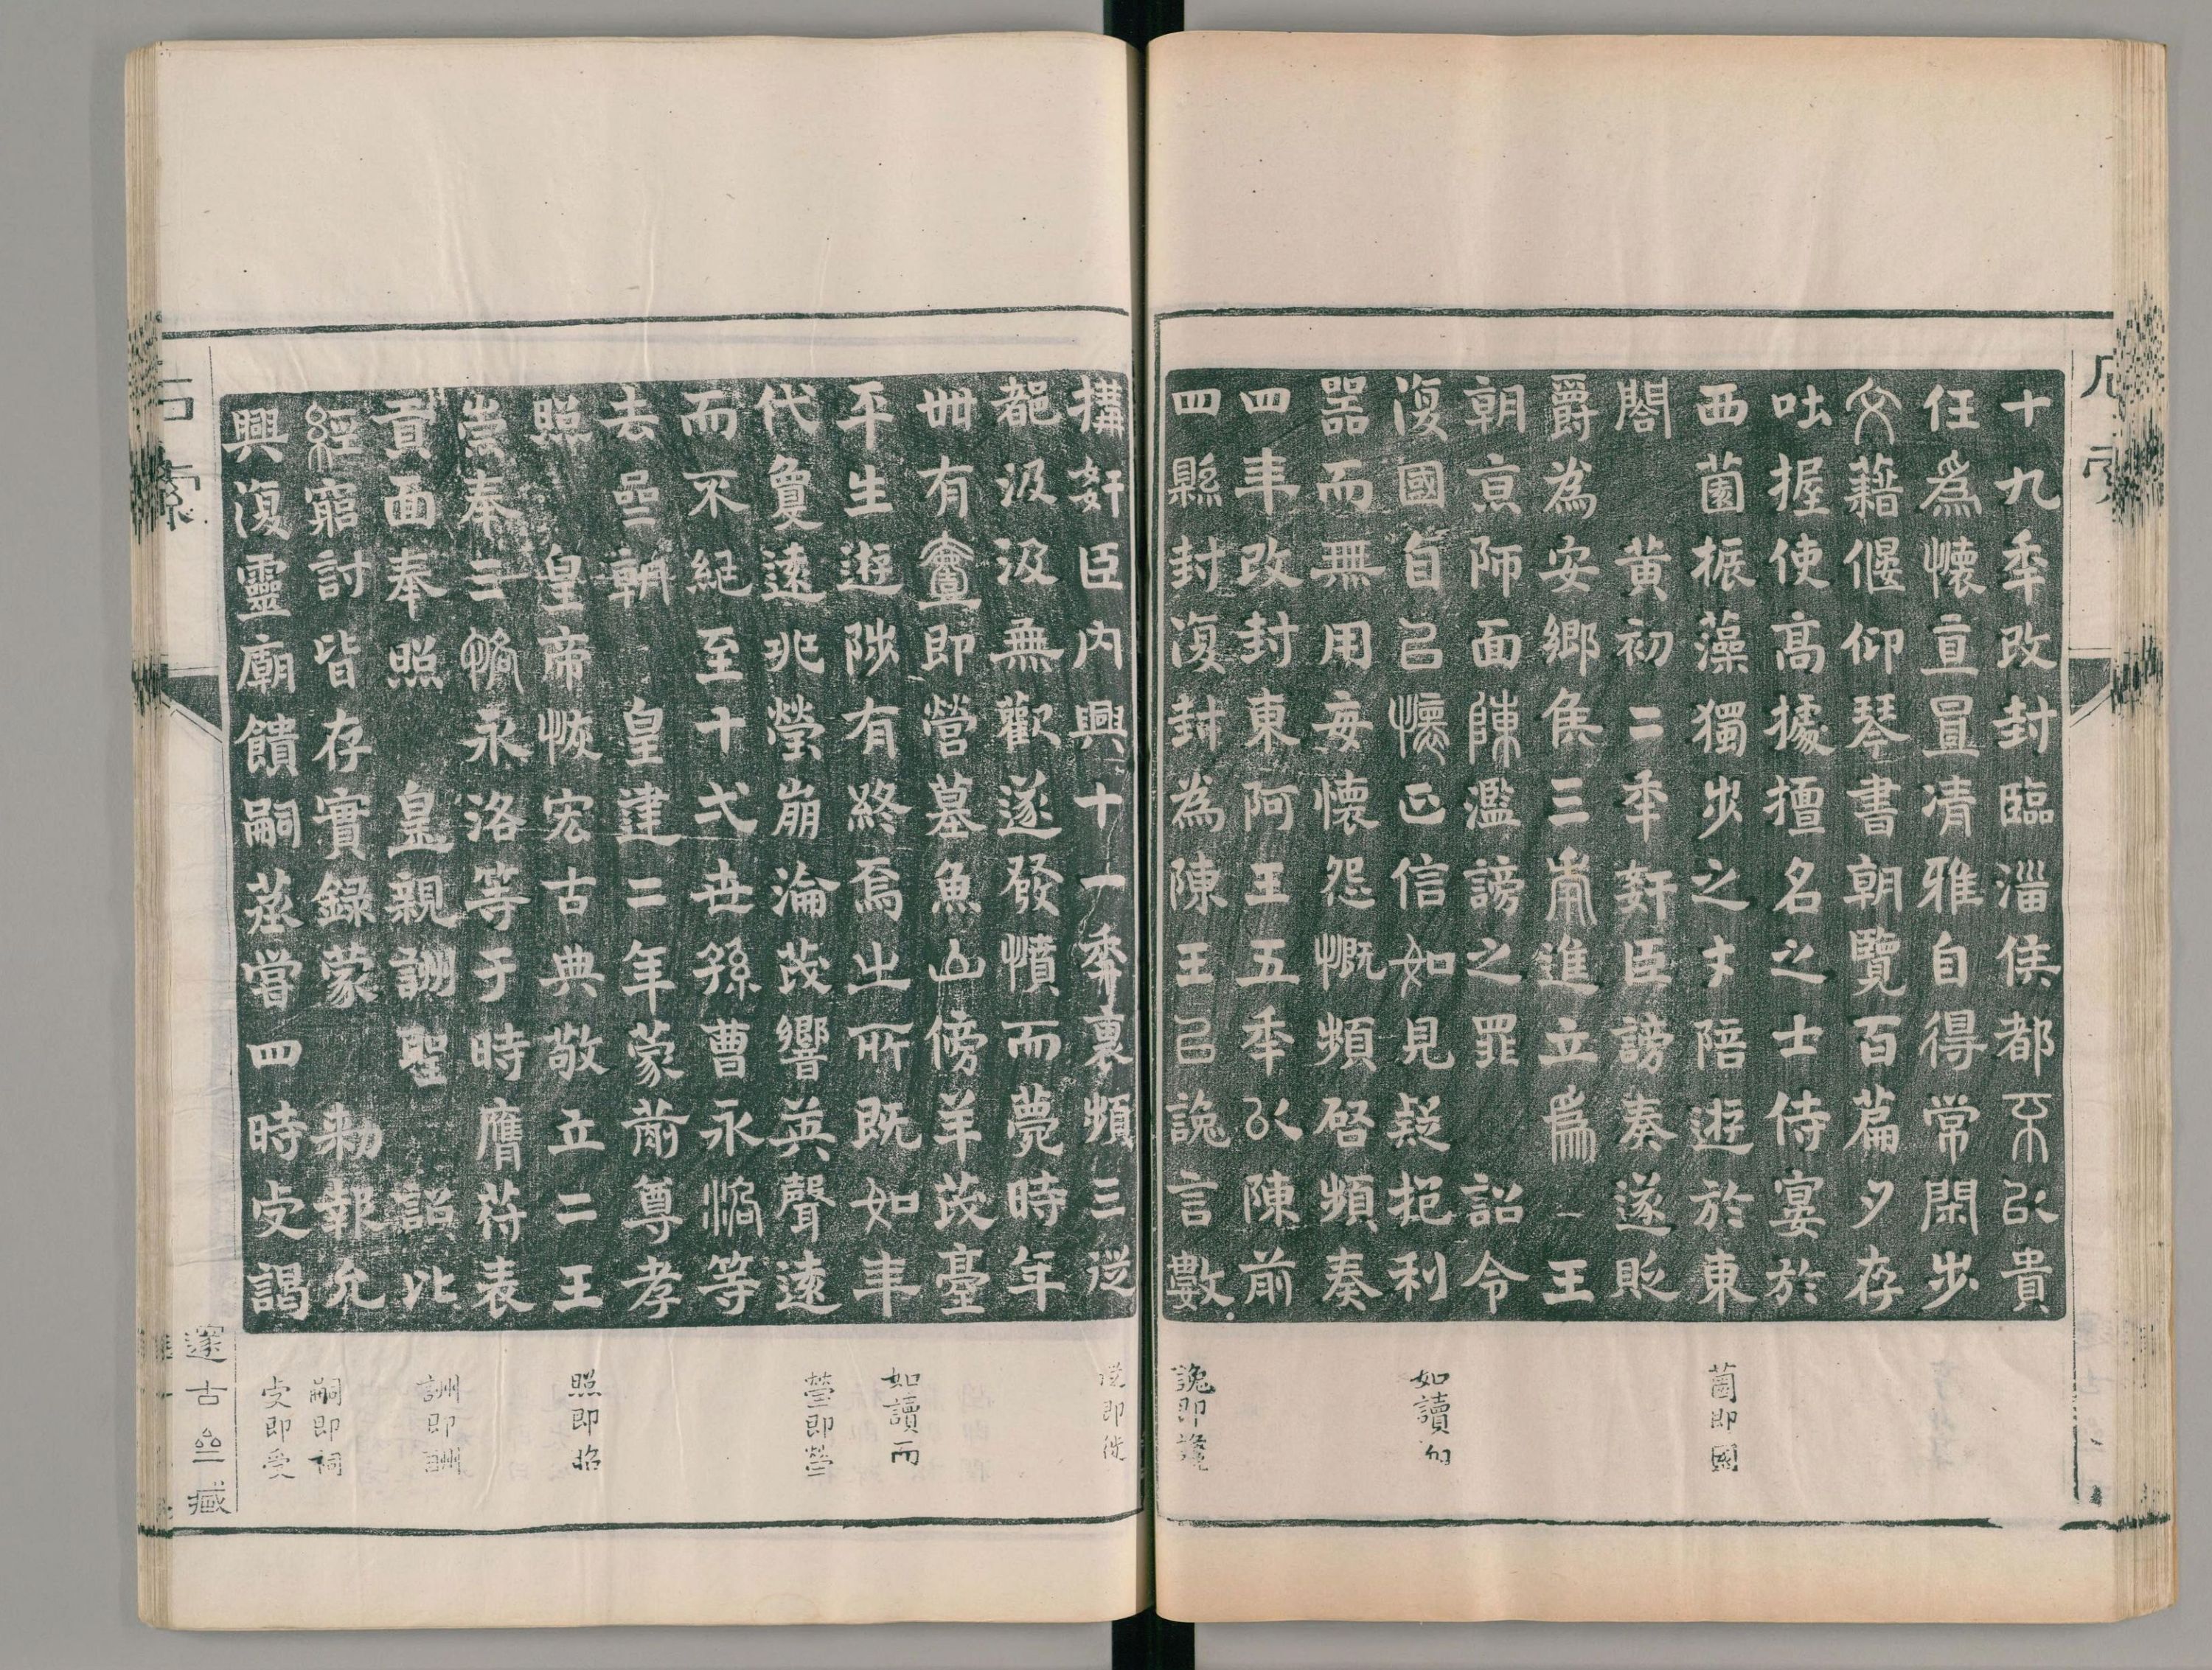 十九秊改封臨淄侯都不以貴
任爲懷亘𣊡清雅自得常閑步
文藉偃仰琴書朝覽百篇夕存
吐握使高據擅名之士侍宴於
西薗振藻獨步之才陪遊於東
閤　黄初二秊姧臣謗奏遂貶
爵為安鄉侯三齊進立爲　王
朝京師面陳濫謗之罪　詔令
復國自以懷正信如見疑抱利
器而無用每懷怨慨頻啓頻奏
四年改封東阿王五秊以陳前
四縣封復封為陳王以讒言數
構奸臣内興十一秊裏頻三徙
都汲汲無歡遂發憤而薨時年
卌有壹即營墓魚山傍羊茂臺
平生遊陟有終焉之所既如年
代敻遠兆塋崩淪茂響英聲遠
而不絕至十弌世孫曹永洛等
去齊朝　皇建二年蒙前尊孝
照皇帝恢宏古典敬立二王
崇奉三恪永洛等于時膺符表
貢面奉照　皇親詶聖　詔比
經窮討皆存實錄蒙　勑報允
興復靈廟饋嗣蒸嘗四時受謁
薗即園
如讀而
讒即讒
徙即徙
如讀而
塋即塋
照即昭
詶即酬
嗣即祠
受即受
石索
邃古齋藏